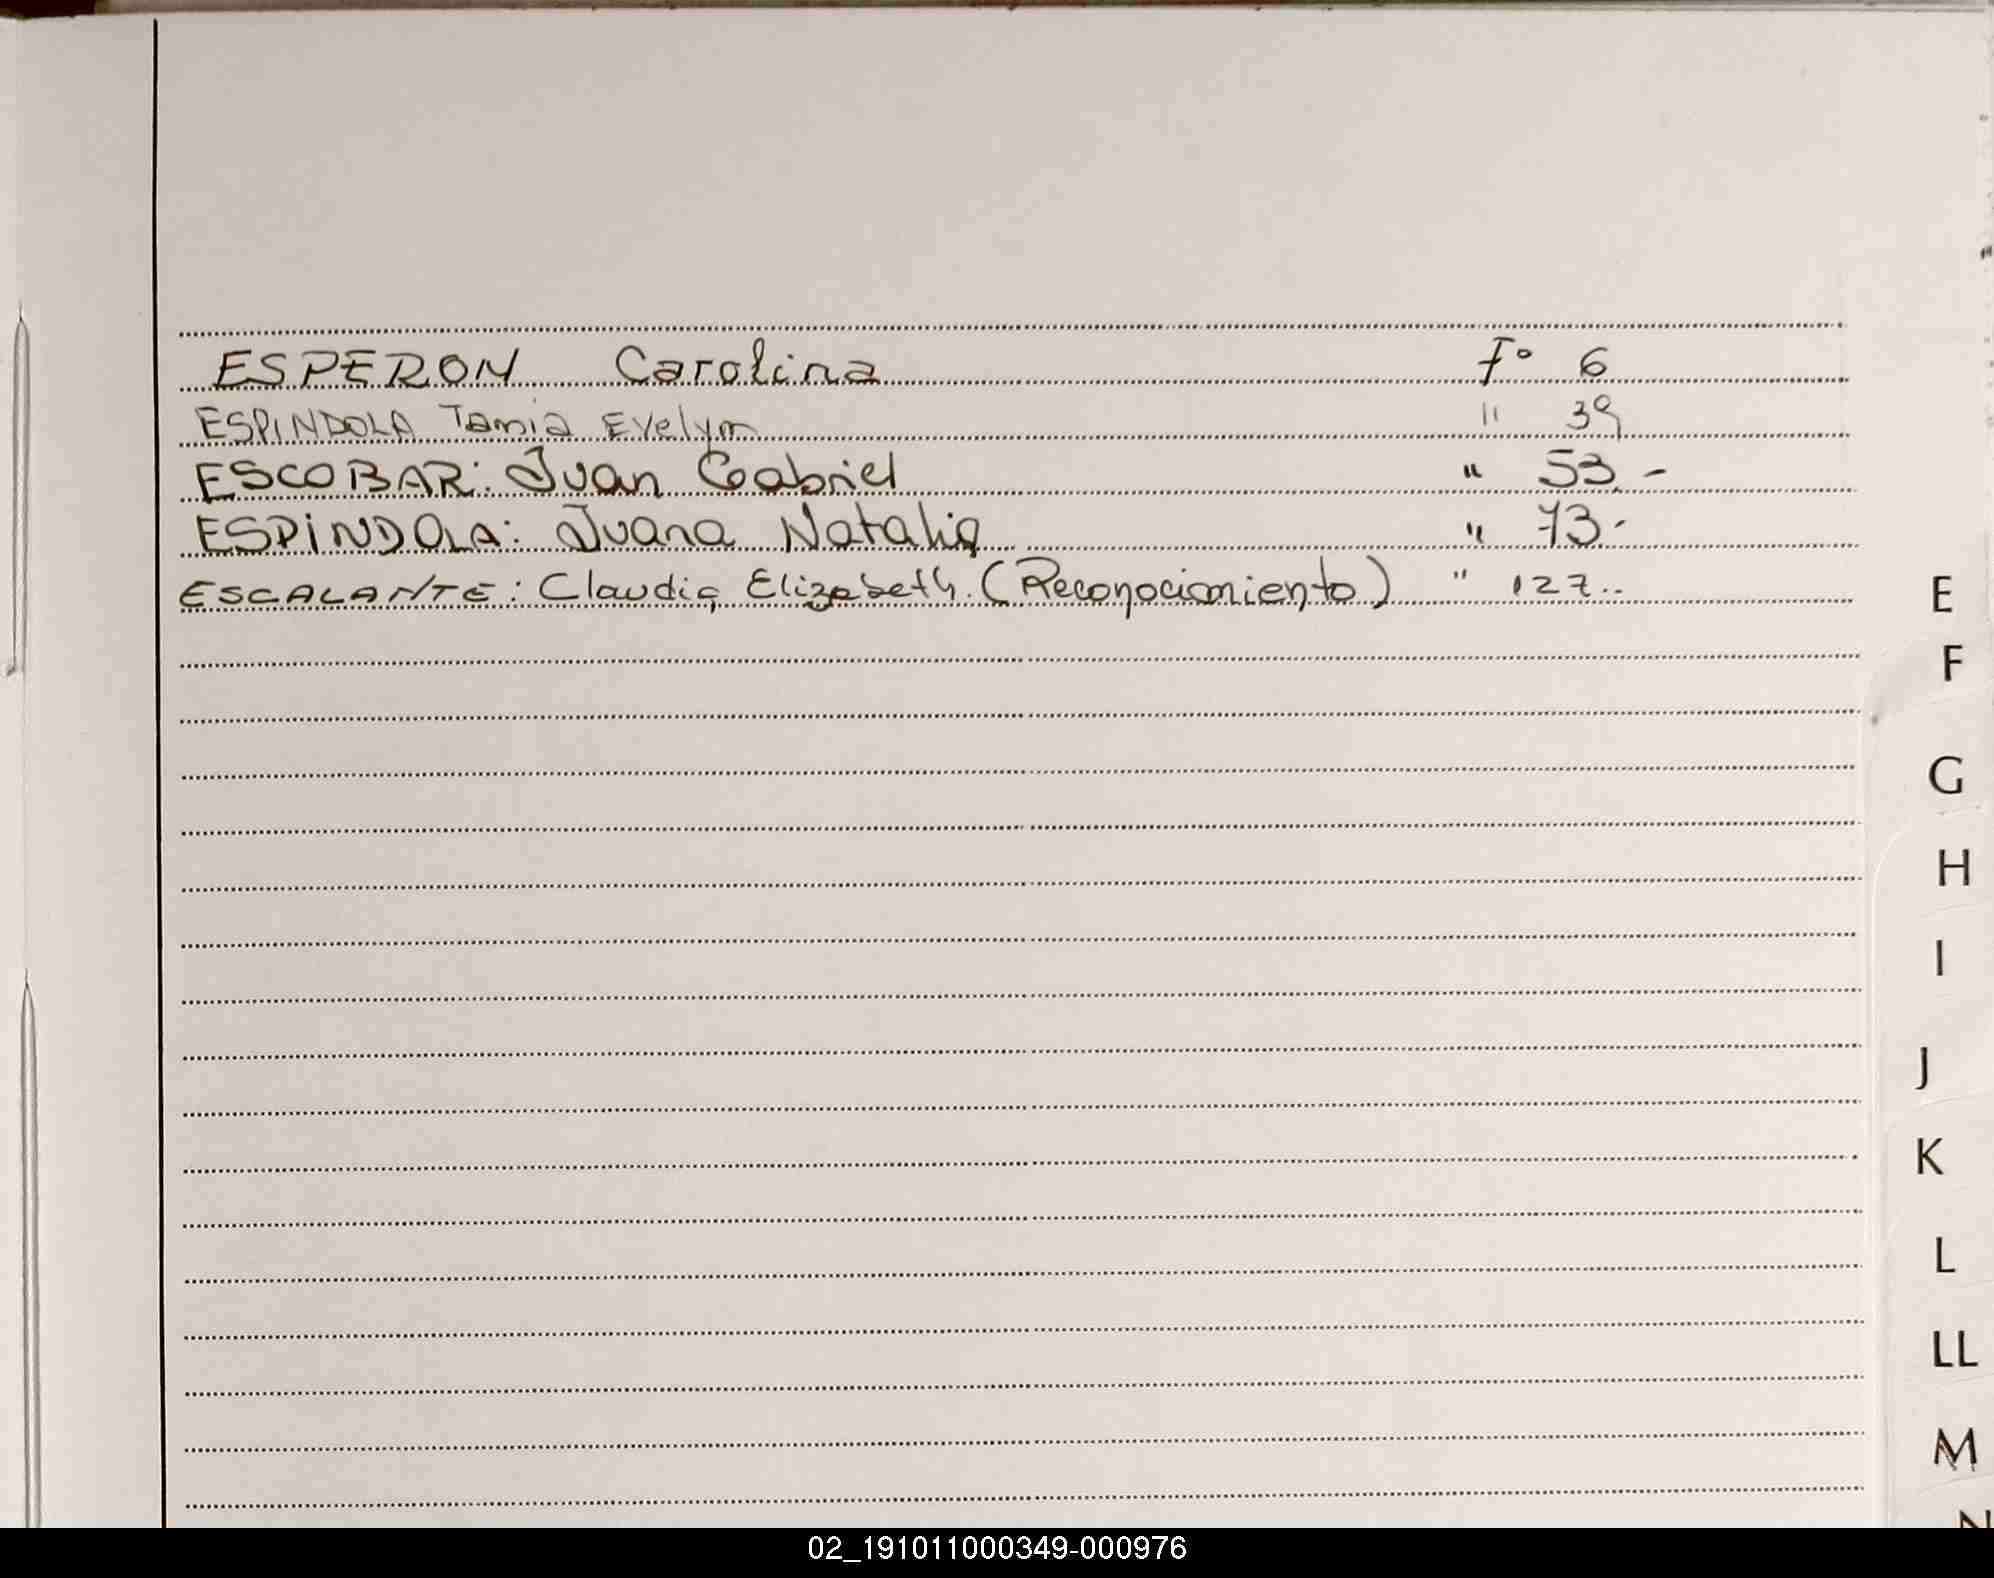 ESPERON Carolina Fº 6
ESPINDOLA Tamia Evelyn " 39
ESCOBAR: Juan Gabriel " 53.-
ESPINDOLA: Juana Natalia " 73.-
ESCALANTE: Claudia Elizabeth. (Reconocimiento) " 127..
E
F
G
H
I
J
K
L
LL
M
N
02_191011000349-000976